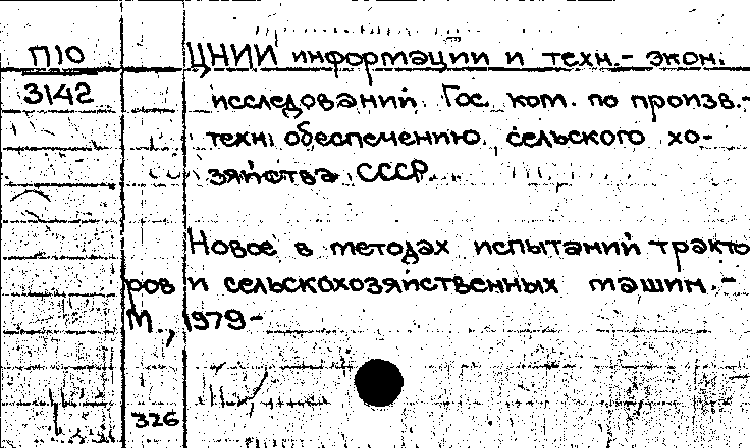 П10 ЦНИИ информации и техн.- экон.
3142 исследований. Гос. ком. по произв.-
техн. обеспечению сельского хо-
зяйства СССР.
Новое в методах испытаний тракто
ров и сельскохозяйственных машин.-
М., 1979-
326